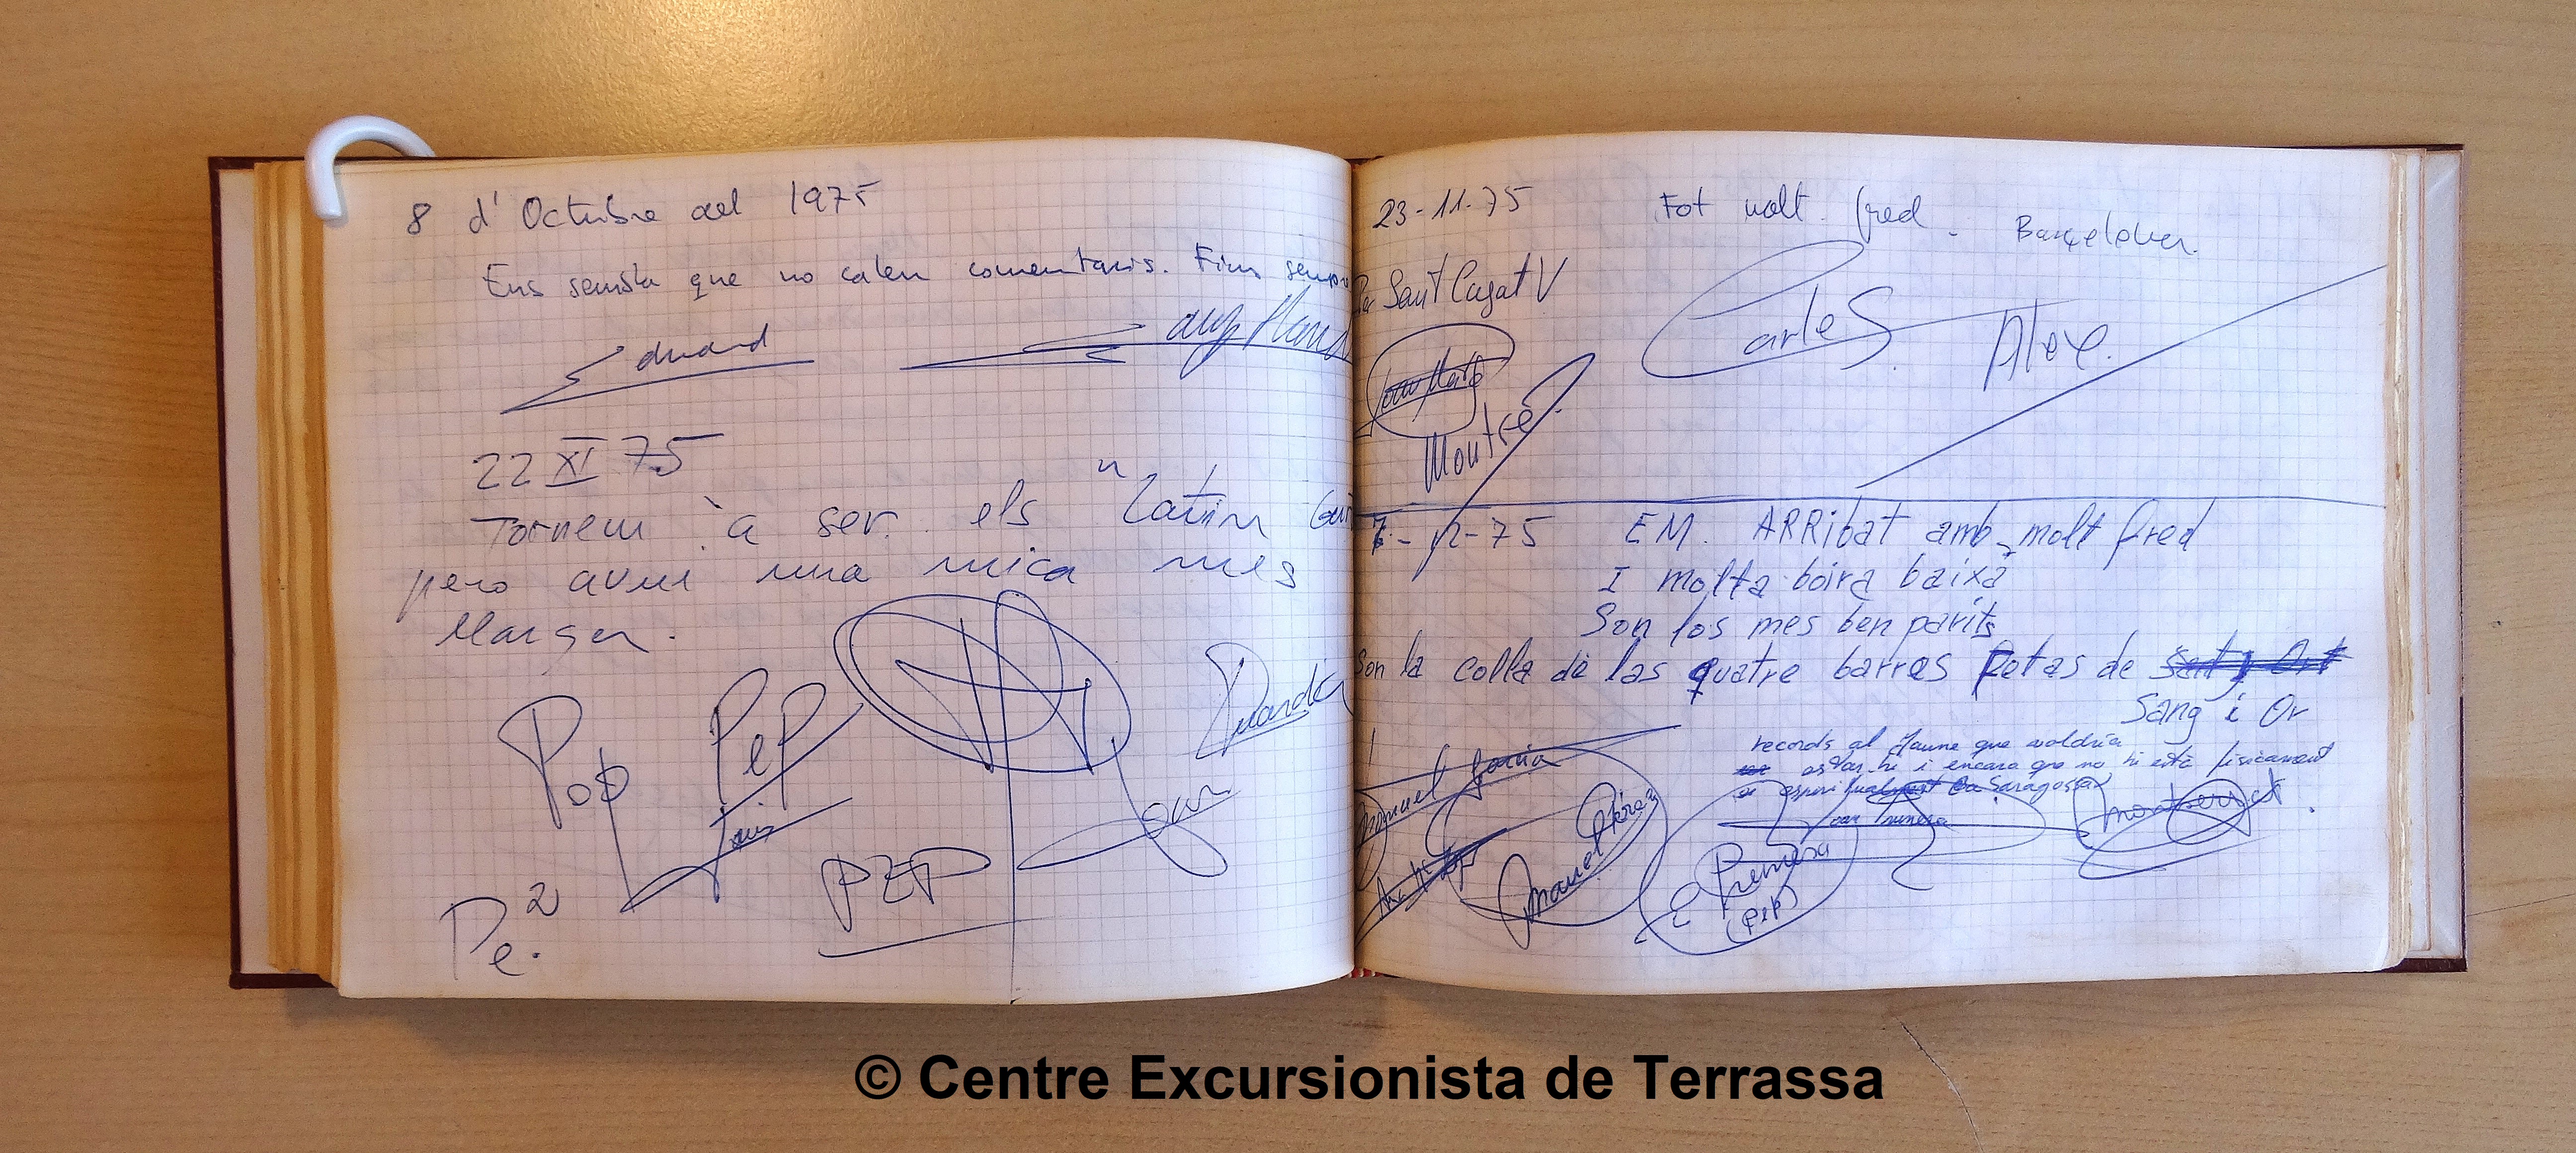 8 d'Octubre del 1975
Ens sembla que no calen comentaris. Fins sempre
Eduard
22 XI 75
Tornem a ser els "Latin
pero avui una mica mes
Marger.
Pop
PeP
Lluis
PEP
Pe.2
23-11-75
Fot molt fred.
Sant Cugat V
Carles
Alex.
Montse
7-12-75 EM. ARRibat amb molt fred
I molta boira baixa
Son los mes ben parits
Son la colla de las quatre barres Rotas de
Sang i Or
records al Jaume que voldria
estar-hi i encara que no hi està fisicament
Saragossa
Manuel Garcia
Manuel Pérez
(PeP)
Montserrat
© Centre Excursionista de Terrassa